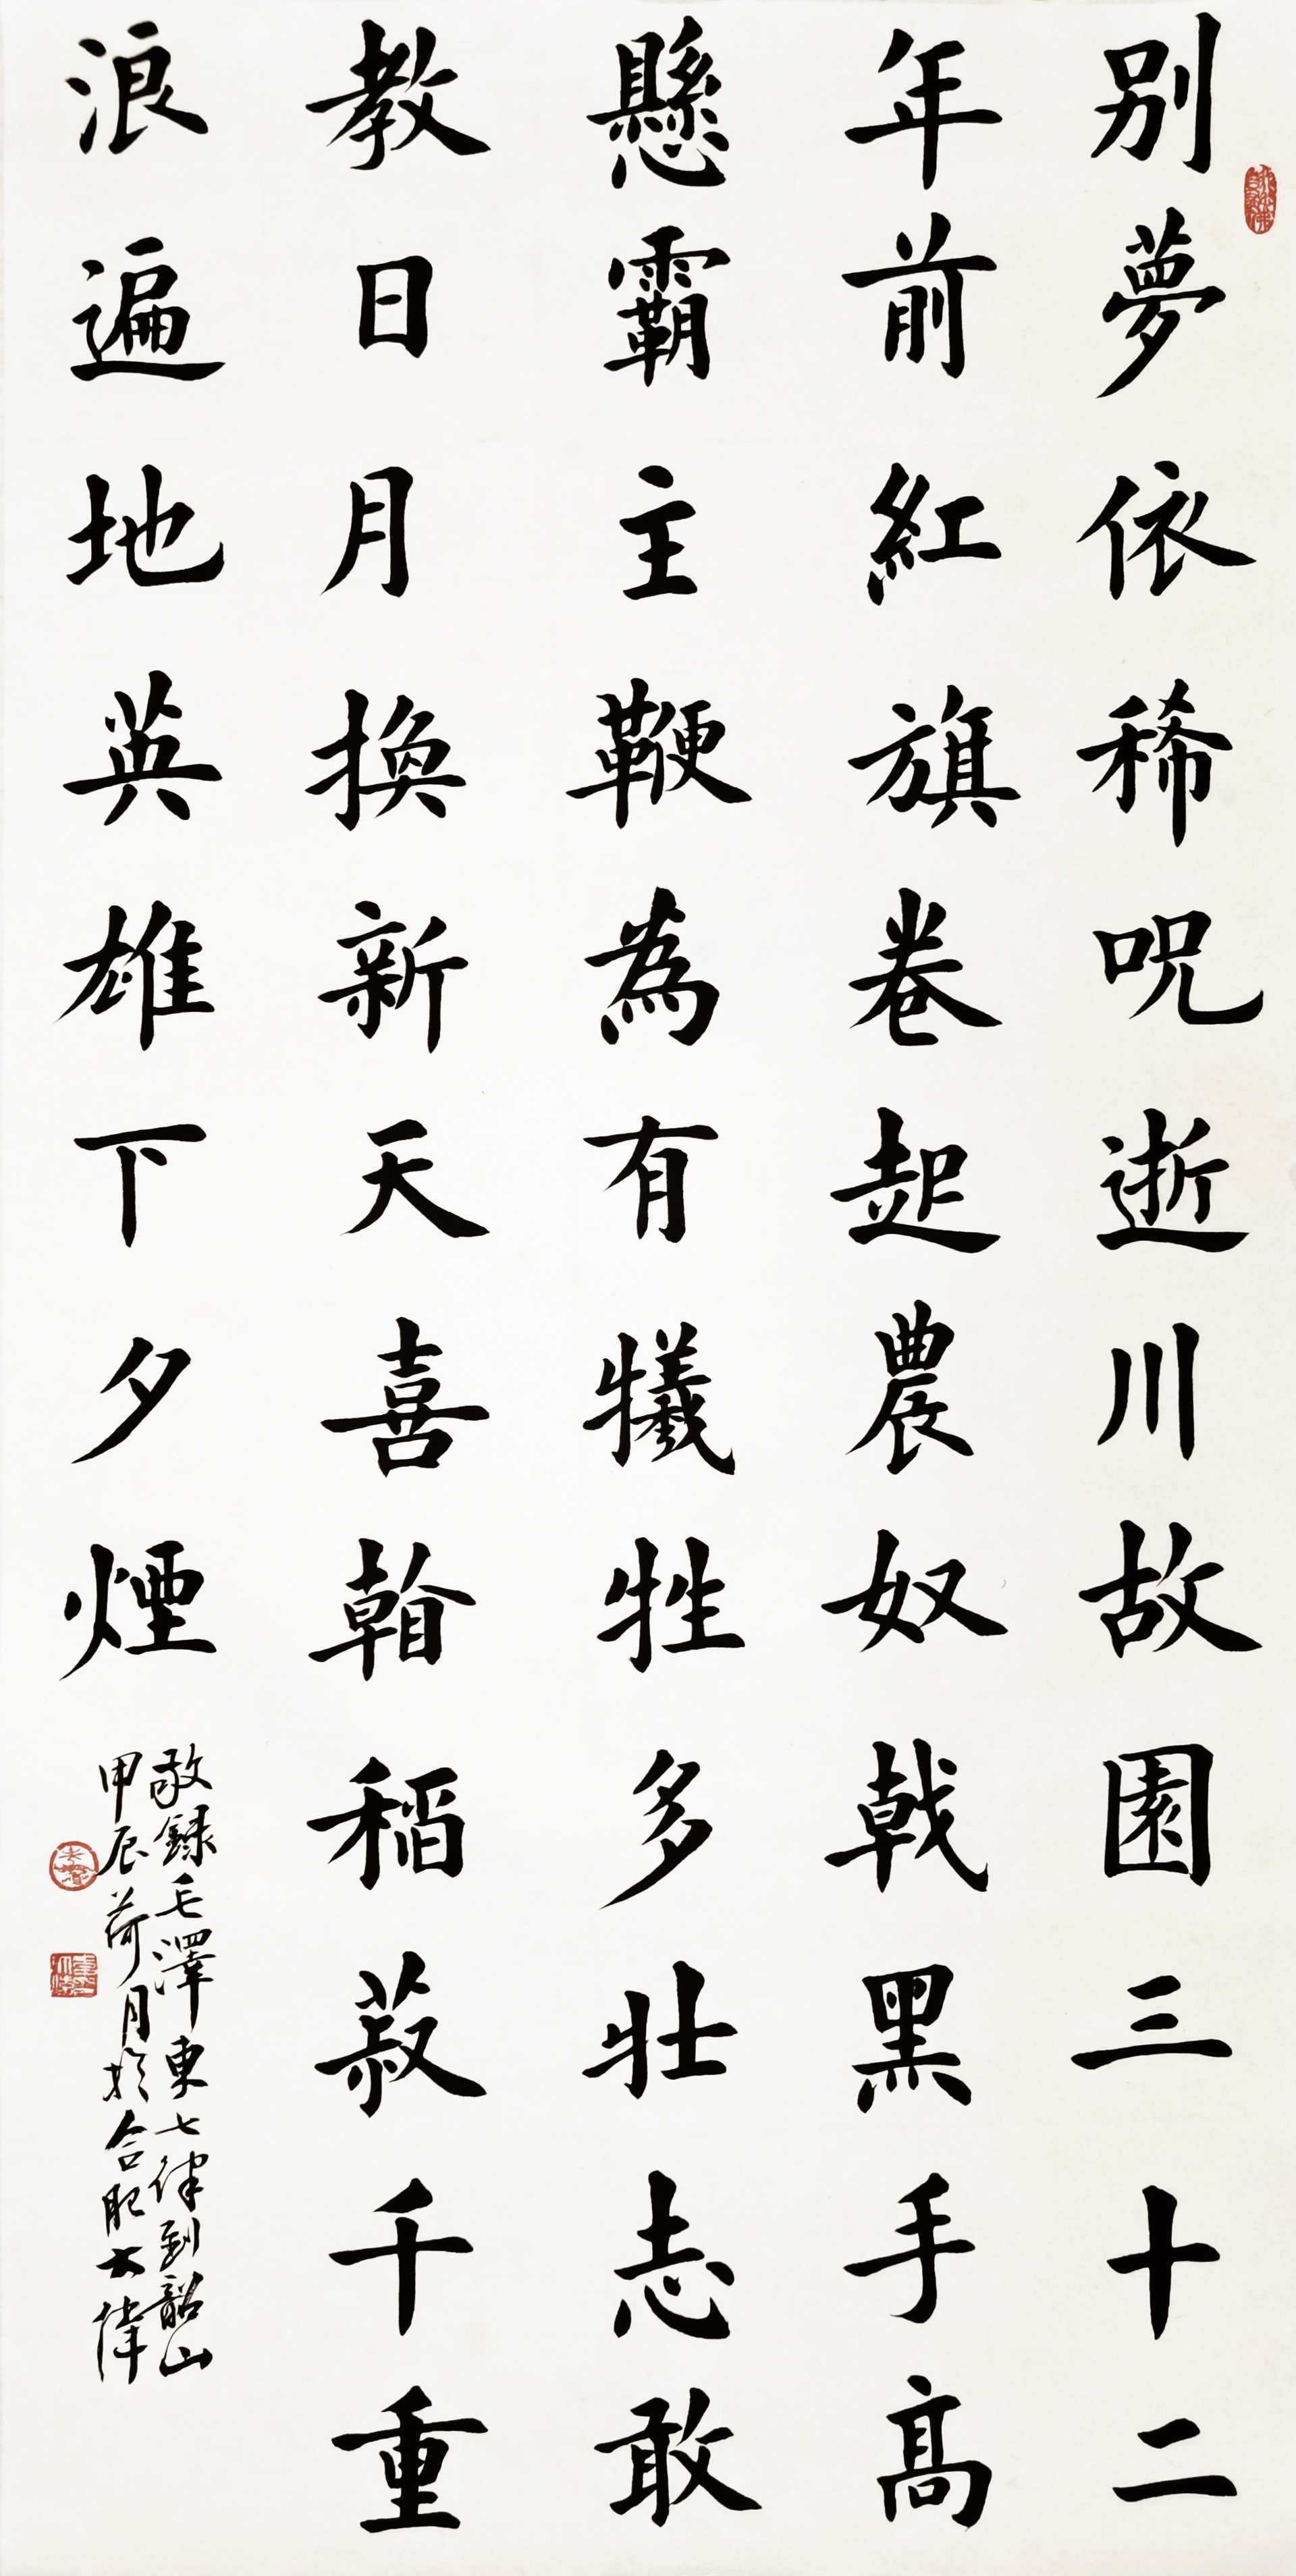 别夢依稀呪逝川故園三十二
年前紅旗卷起農奴戟黑手高
懸霸主鞭為有犧牲多壯志敢
教日月換新天喜看稻菽千重
浪遍地英雄下夕煙
敬録毛澤東七律到韶山
甲辰荷月於合肥大偉